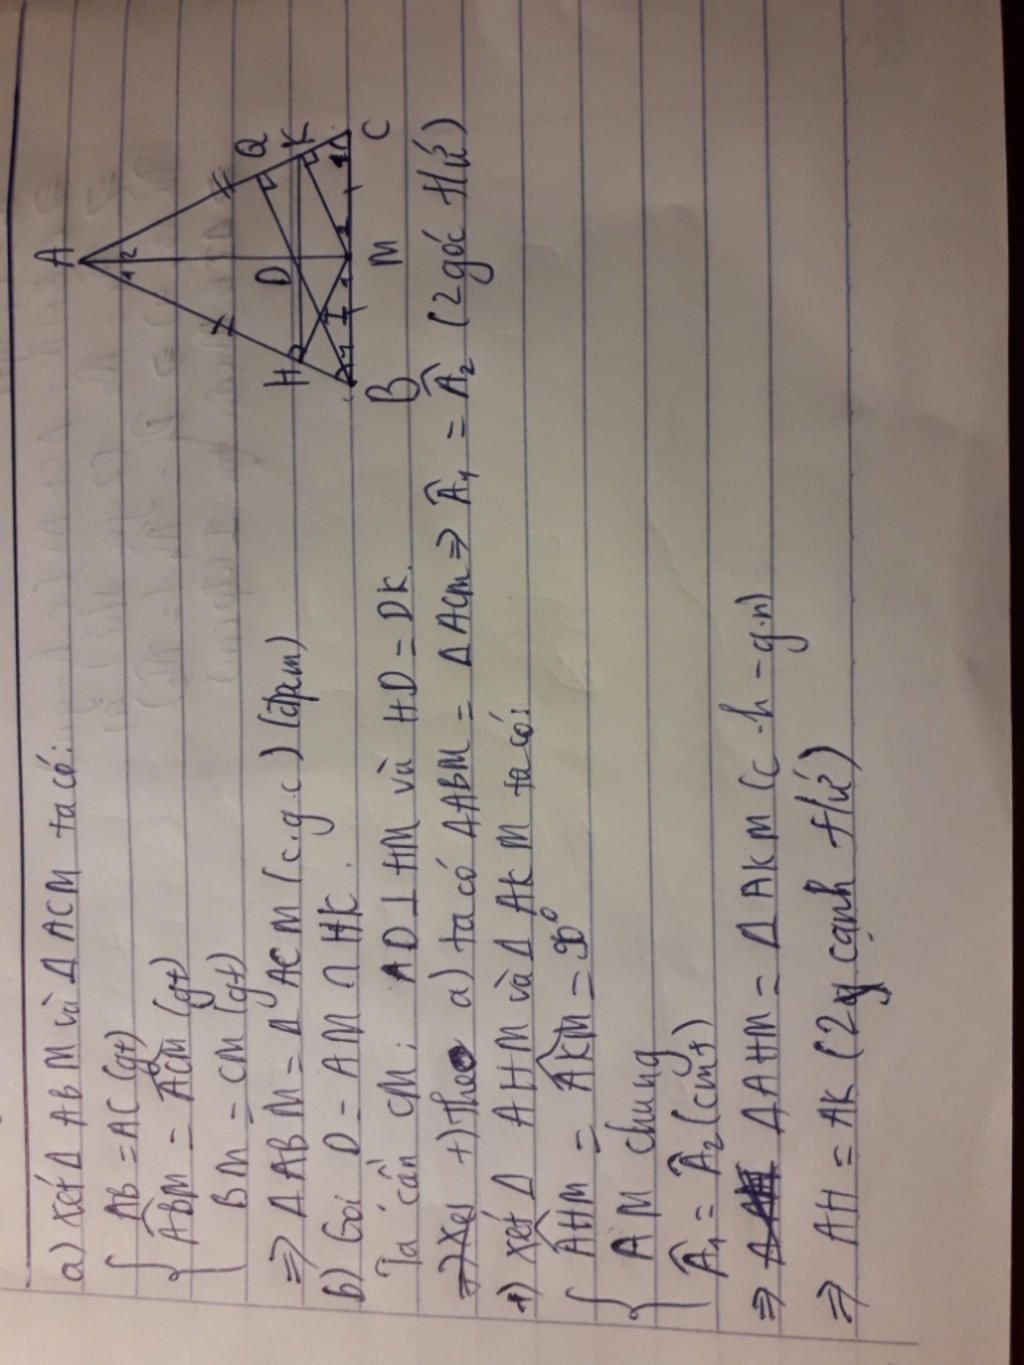 a) Xét Δ ABM và Δ ACM ta có:
AB = AC (gt)
ABM̂ = ACM̂ (gt)
BM = CM (gt)
⇒ Δ ABM = Δ ACM (c.g.c) (đpcm)
b) Gọi D = AM ∩ HK.
Ta cần CM: AD ⊥ HM và HD = DK.
+) Theo a) ta có ΔABM = ΔACM ⇒ Â1 = Â2 (2 góc t/ứ)
+) Xét Δ AHM và Δ AKM ta có:
AHM̂ = AKM̂ = 90°
AM chung
Â1 = Â2 (cmt)
⇒ ΔAHM = ΔAKM (c.h-g.n)
⇒ AH = AK (2 cạnh t/ứ)
A
1 2
Q
H D K
I
1 1 2 1
B M C